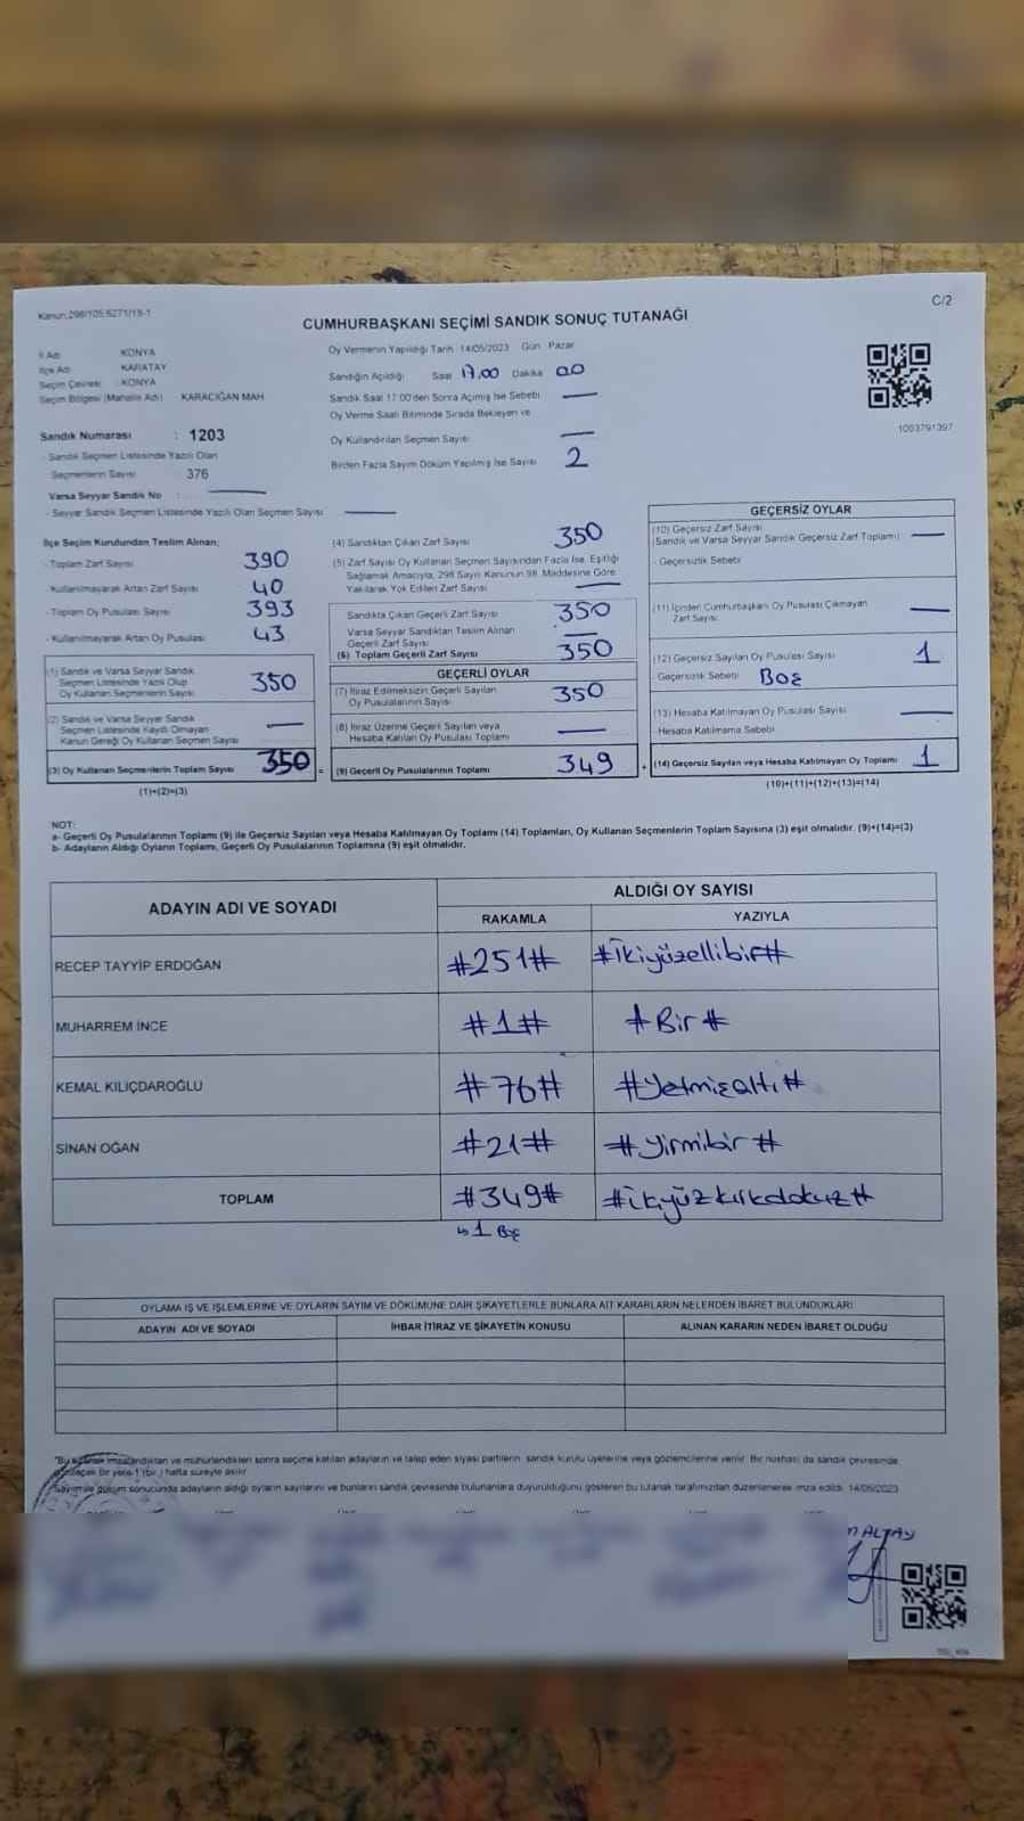 Kanun:298/105,6271/19-1
C/2
CUMHURBAŞKANI SEÇİMİ SANDIK SONUÇ TUTANAĞI
İl Adı KONYA
İlçe Adı KARATAY
Seçim Çevresi KONYA
Seçim Bölgesi (Mahalle Adı) KARACİĞAN MAH
Sandık Numarası : 1203
- Sandık Seçmen Listesinde Yazılı Olan
Seçmenlerin Sayısı 376
Varsa Seyyar Sandık No :
- Seyyar Sandık Seçmen Listesinde Yazılı Olan Seçmen Sayısı
Oy Vermenin Yapıldığı Tarih 14/05/2023 Gün Pazar
Sandığın Açıldığı Saat 17.00 Dakika 00
Sandık Saat 17:00'den Sonra Açılmış İse Sebebi
Oy Verme Saati Bitiminde Sırada Bekleyen ve
Oy Kullandırılan Seçmen Sayısı
Birden Fazla Sayım Döküm Yapılmış İse Sayısı 2
1003791397
İlçe Seçim Kurulundan Teslim Alınan;
- Toplam Zarf Sayısı 390
- Kullanılmayarak Artan Zarf Sayısı 40
- Toplam Oy Pusulası Sayısı 393
- Kullanılmayarak Artan Oy Pusulası 43
(1) Sandık ve Varsa Seyyar Sandık
Seçmen Listesinde Yazılı Olup
Oy Kullanan Seçmenlerin Sayısı 350
(2) Sandık ve Varsa Seyyar Sandık
Seçmen Listesinde Kayıtlı Olmayan
Kanun Gereği Oy Kullanan Seçmen Sayısı
(3) Oy Kullanan Seçmenlerin Toplam Sayısı 350 =
(1)+(2)=(3)
(4) Sandıktan Çıkan Zarf Sayısı 350
(5) Zarf Sayısı Oy Kullanan Seçmen Sayısından Fazla İse, Eşitliği
Sağlamak Amacıyla, 298 Sayılı Kanunun 98. Maddesine Göre
Yakılarak Yok Edilen Zarf Sayısı
Sandıkta Çıkan Geçerli Zarf Sayısı 350
Varsa Seyyar Sandıktan Teslim Alınan
Geçerli Zarf Sayısı
(6) Toplam Geçerli Zarf Sayısı 350
GEÇERLİ OYLAR
(7) İtiraz Edilmeksizin Geçerli Sayılan
Oy Pusulalarının Sayısı 350
(8) İtiraz Üzerine Geçerli Sayılan veya
Hesaba Katılan Oy Pusulası Toplamı
(9) Geçerli Oy Pusulalarının Toplamı 349 +
GEÇERSİZ OYLAR
(10) Geçersiz Zarf Sayısı
(Sandık ve Varsa Seyyar Sandık Geçersiz Zarf Toplamı)
- Geçersizlik Sebebi
(11) İçinden Cumhurbaşkanı Oy Pusulası Çıkmayan
Zarf Sayısı
(12) Geçersiz Sayılan Oy Pusulası Sayısı 1
Geçersizlik Sebebi Boş
(13) Hesaba Katılmayan Oy Pusulası Sayısı
Hesaba Katılmama Sebebi
(14) Geçersiz Sayılan veya Hesaba Katılmayan Oy Toplamı 1
(10)+(11)+(12)+(13)=(14)
NOT:
a- Geçerli Oy Pusulalarının Toplamı (9) ile Geçersiz Sayılan veya Hesaba Katılmayan Oy Toplamı (14) Toplamları, Oy Kullanan Seçmenlerin Toplam Sayısına (3) eşit olmalıdır. (9)+(14)=(3)
b- Adayların Aldığı Oyların Toplamı, Geçerli Oy Pusulalarının Toplamına (9) eşit olmalıdır.
ADAYIN ADI VE SOYADI
ALDIĞI OY SAYISI
RAKAMLA YAZIYLA
RECEP TAYYİP ERDOĞAN #251# #ikiyüzellibir#
MUHARREM İNCE #1# #Bir#
KEMAL KILIÇDAROĞLU #76# #Yetmişaltı#
SİNAN OĞAN #21# #yirmibir#
TOPLAM #349# #ikiyüzkırkdokuz#
↳ 1 Boş
OYLAMA İŞ VE İŞLEMLERİNE VE OYLARIN SAYIM VE DÖKÜMÜNE DAİR ŞİKAYETLERLE BUNLARA AİT KARARLARIN NELERDEN İBARET BULUNDUKLARI
ADAYIN ADI VE SOYADI İHBAR İTİRAZ VE ŞİKAYETİN KONUSU ALINAN KARARIN NEDEN İBARET OLDUĞU
imzalandıktan ve mühürlendikten sonra seçime katılan adayların ve talep eden siyasi partilerin sandık kurulu üyelerine veya gözlemcilerine verilir. Bir nüshası da sandık çevresinde
bir yere 1 (bir) hafta süreyle asılır
Sayım ve döküm sonucunda adayların aldığı oyların sayılarını ve bunların sandık çevresinde bulunanlara duyurulduğunu gösteren bu tutanak tarafımızdan düzenlenerek imza edildi. 14/05/2023
ALTAY